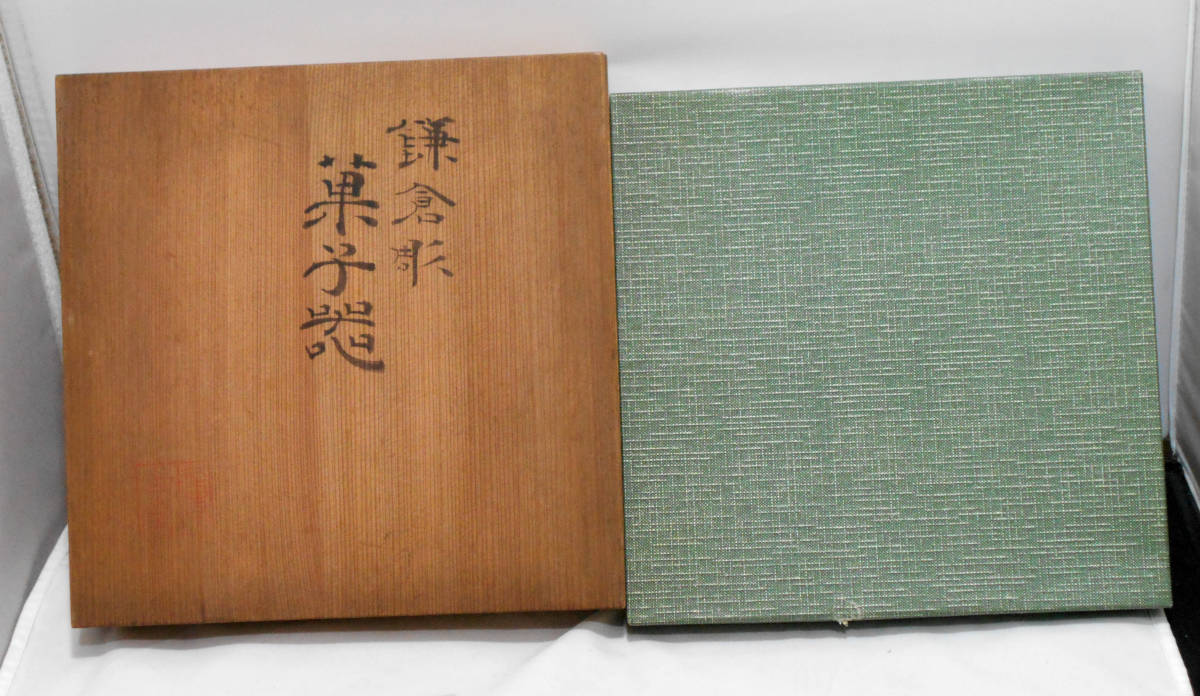 鎌倉彫
菓子器